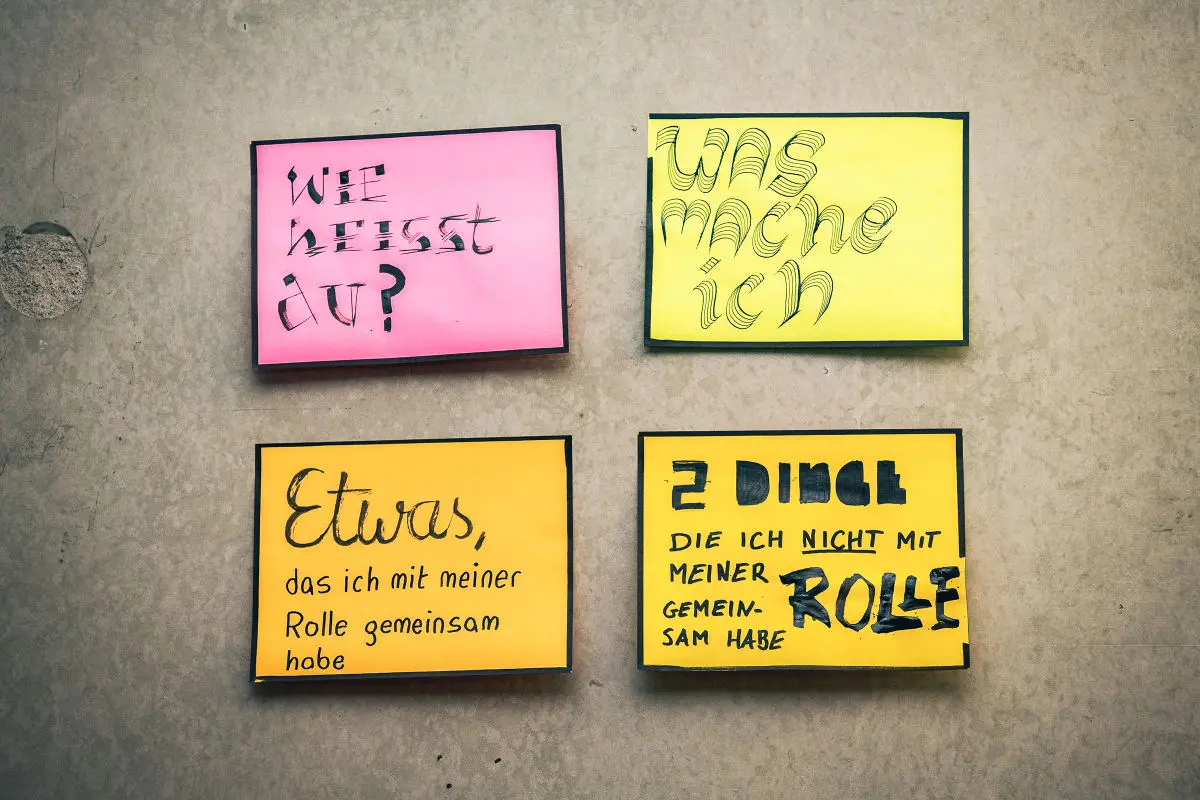 WIE
HEISST
du?
Was
mache
ich
Etwas,
das ich mit meiner
Rolle gemeinsam
habe
2 DINGE
DIE ICH NICHT MIT
MEINER ROLLE
GEMEIN-
SAM HABE